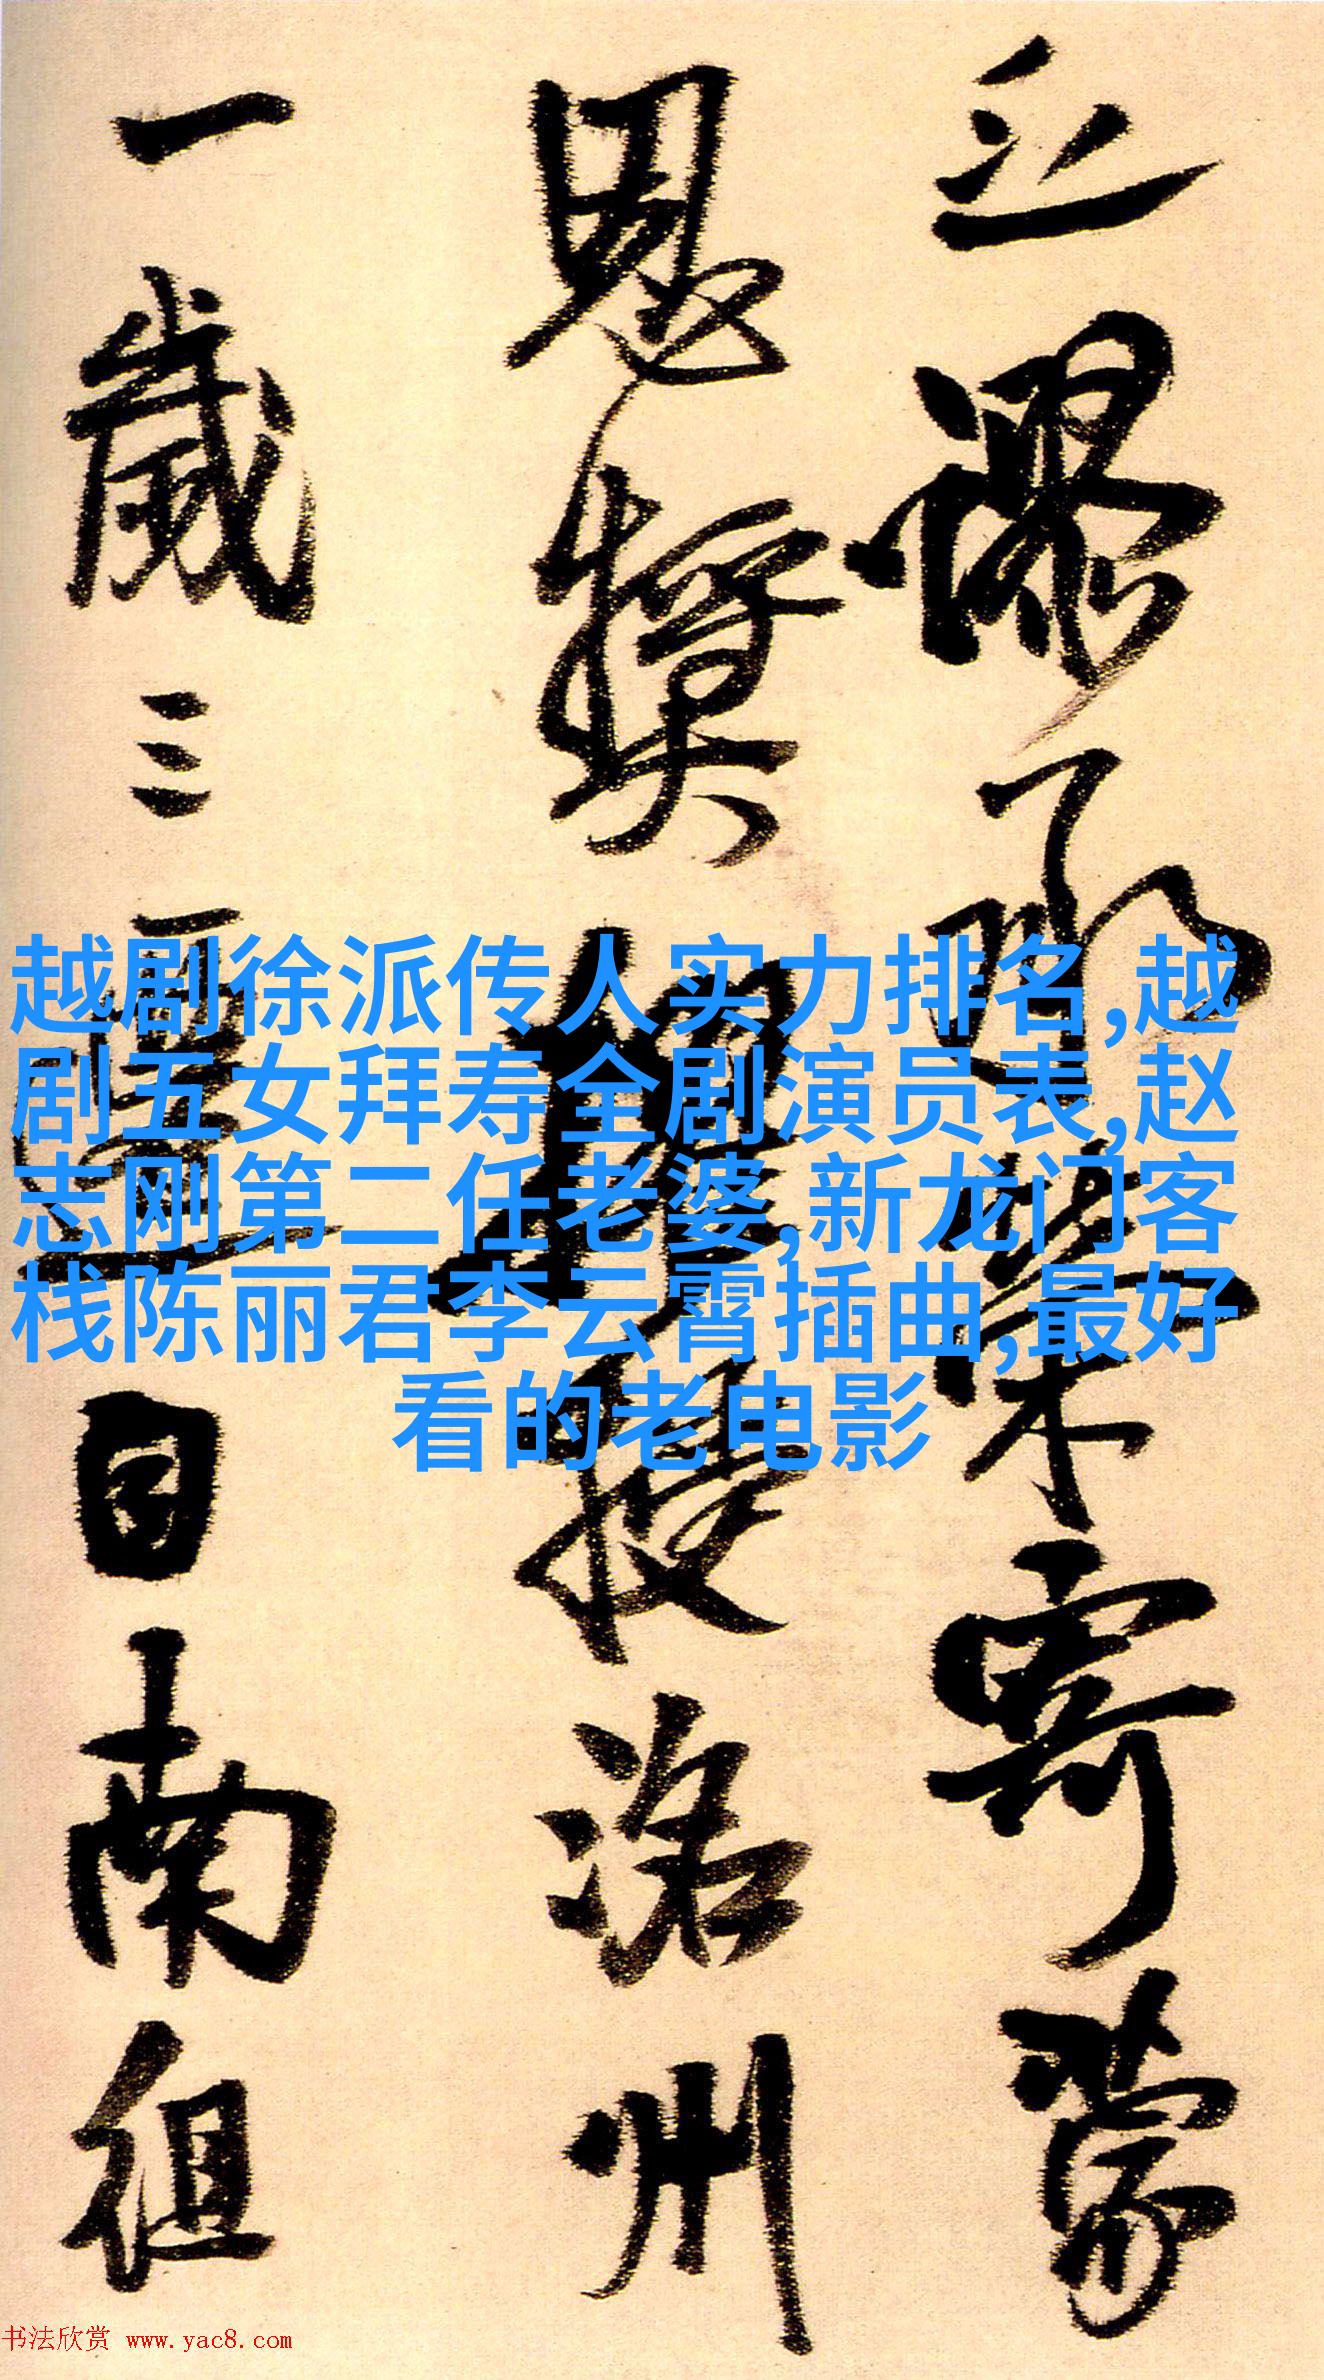 之謬承榮寄蒙
恩獎擢授洛州
一歲三遷自南徂
越剧徐派传人实力排名,越
剧五女拜寿全剧演员表,赵
志刚第二任老婆,新龙门客
栈陈丽君李云霄插曲,最好
看的老电影
书法欣赏 www.yac8.com